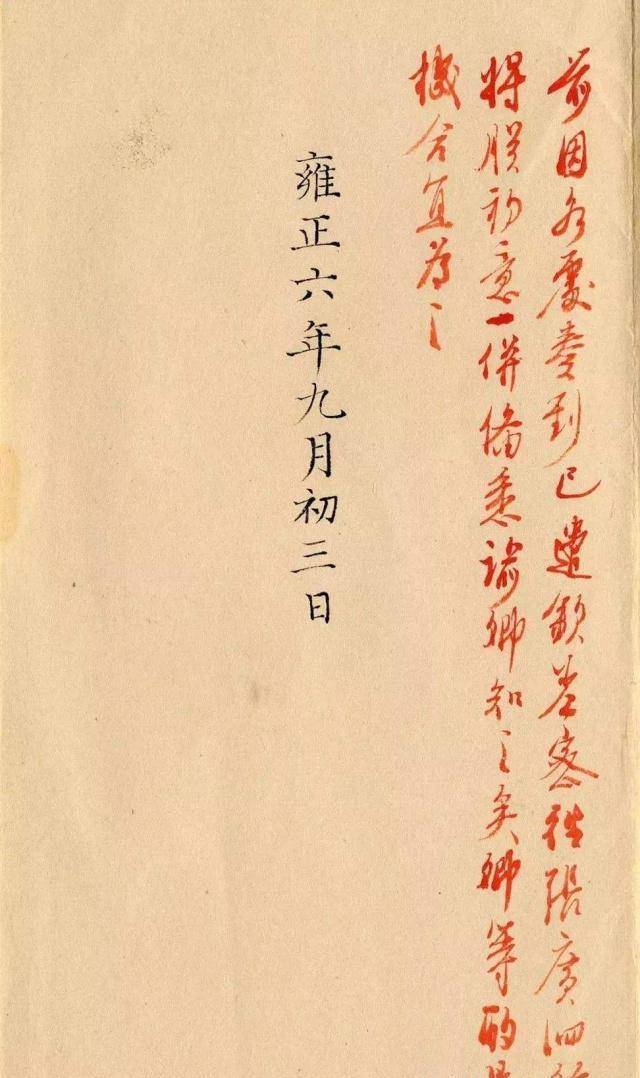 前因各處奏到已遣欽差密往張廣泗
將朕初意一併俻悉諭卿知之矣卿等酌量
機合宜為之
雍正六年九月初三日